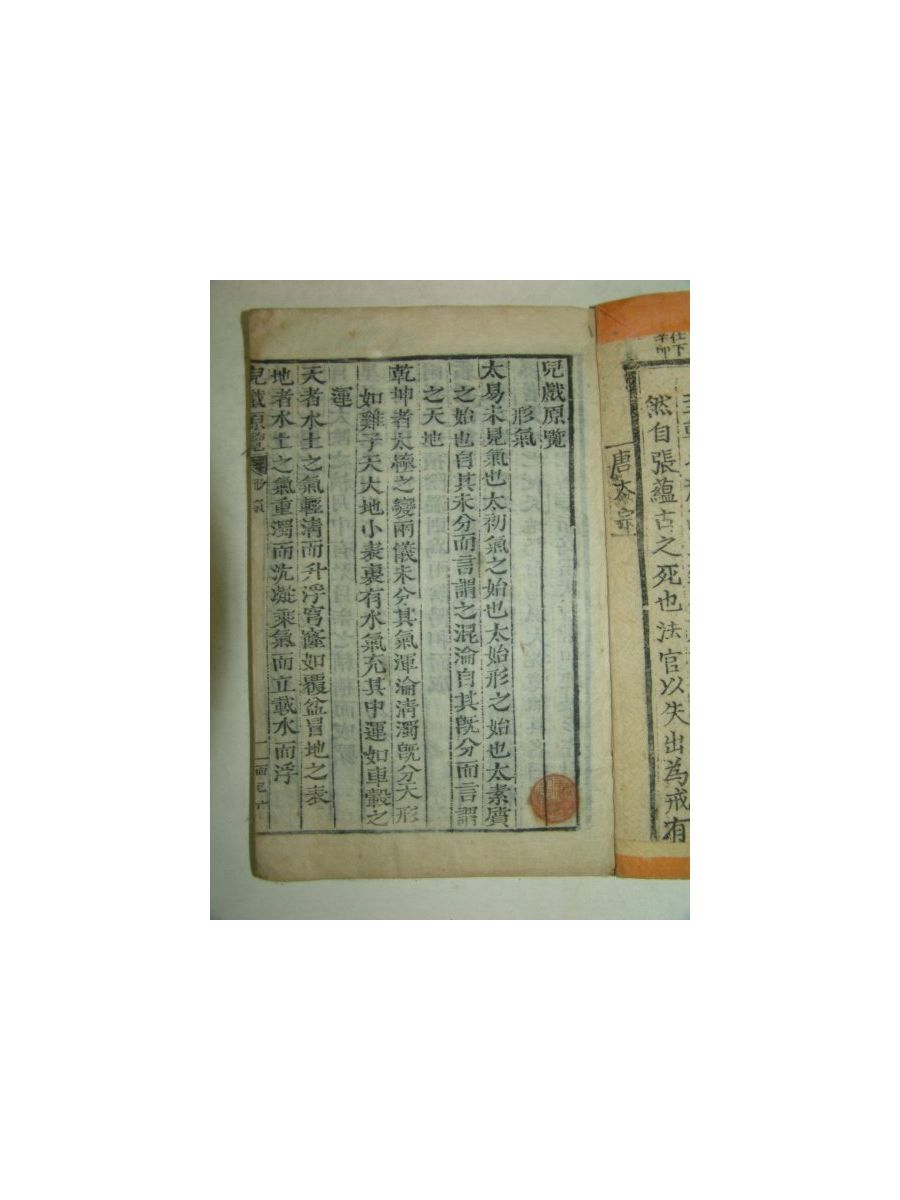 然自張蘊古之死也法官以失出為戒有
唐太宗
兒戲原覽
形氣
太易未見氣也太初氣之始也太始形之始也太素質
之始也自其未分而言謂之混淪自其旣分而言謂
之天地
乾坤者太極之變兩儀未分其氣渾淪清濁旣分天形
如雞子天大地小表裏有水氣充其中運如車轂之
運
天者水土之氣輕清而升浮穹窿如覆盆冒地之表
地者水土之氣重濁而沈凝乘氣而立載水而浮
兒戲原覽 形氣 一